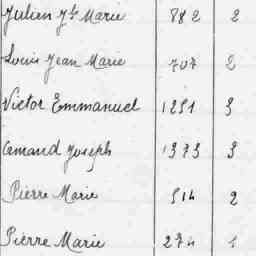 Julien Jh Marie 882 2
Louis Jean Marie 707 2
Victor Emmanuel 1251 3
Armand Joseph 1373 3
Pierre Marie 514 2
Pierre Marie 274 1